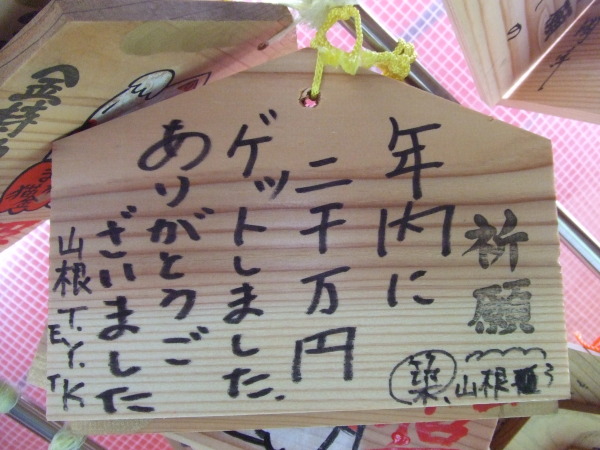 祈願
年内に
二千万円
ゲットしました.
ありがとうご
ざいました
山根 T.
E.Y.
T.K.
築、山根
金持